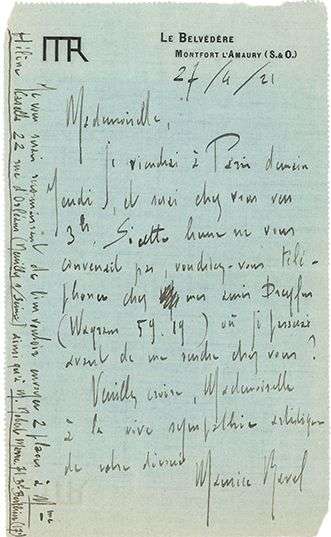 MR
LE BELVÉDÈRE
MONTFORT L'AMAURY (S.&O.)
27/4/21
Mademoiselle,
Je viendrai à Paris demain
Jeudi, et serai chez vous vers
3h. Si cette heure ne vous
convenait pas, voudriez-vous télé-
phoner chez mes amis Dreyfus
(Wagram 59.19) où je passerai
avant de me rendre chez vous?
Veuillez croire, Mademoiselle
à la vive sympathie artistique
de votre dévoué
Maurice Ravel
Je vous serais reconnaissant de bien vouloir envoyer 2 places à Mme
Hélène Casella 22 rue d'Orléans (Neuilly s/Seine) ainsi qu'à M. 71 Bd Berthier (17e)